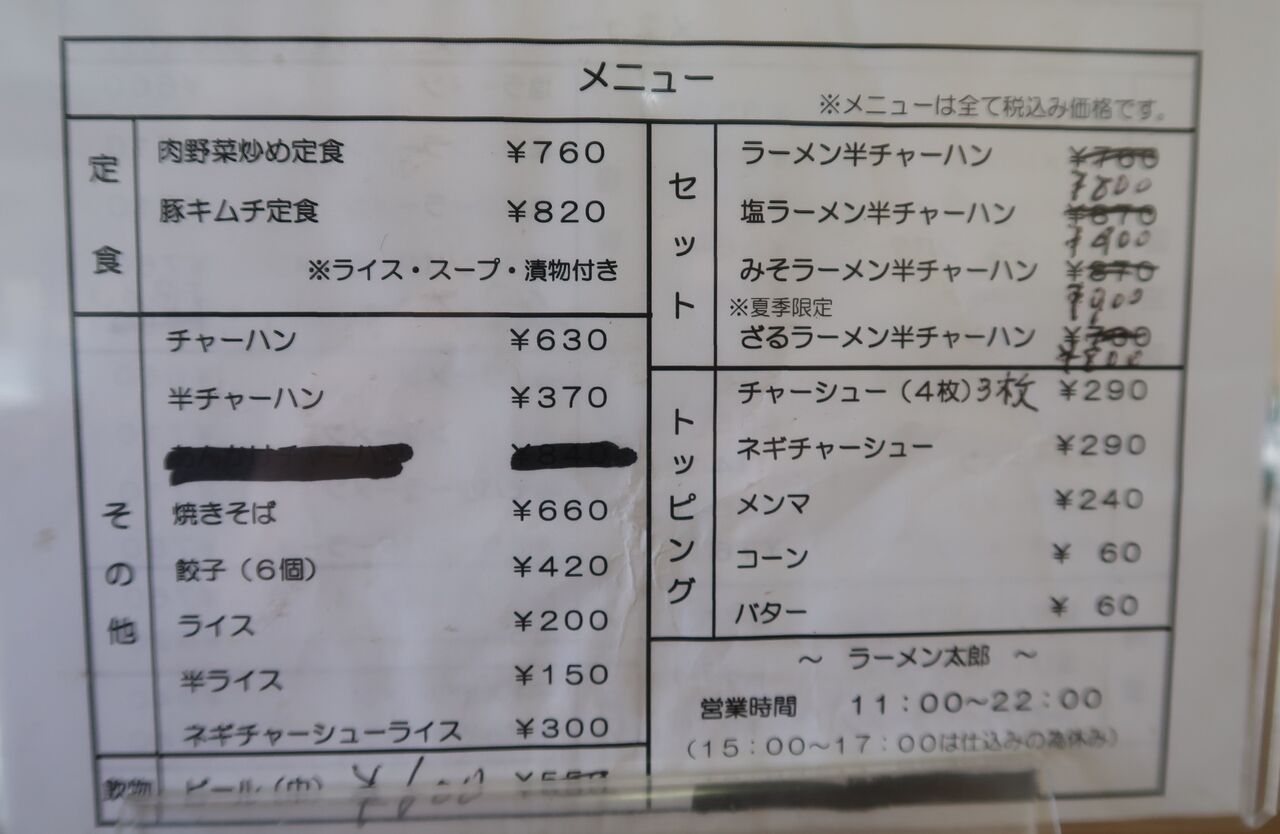 メニュー
※メニューは全て税込み価格です。
定食
肉野菜炒め定食 ¥760
豚キムチ定食 ¥820
※ライス・スープ・漬物付き
その他
チャーハン ¥630
半チャーハン ¥370
あんかけチャーハン ¥840
焼きそば ¥660
餃子（６個） ¥420
ライス ¥200
半ライス ¥150
ネギチャーシューライス ¥300
飲物
ビール（中） ¥550
セット
ラーメン半チャーハン ¥760
¥800
塩ラーメン半チャーハン ¥870
¥900
みそラーメン半チャーハン ¥870
¥900
※夏季限定
ざるラーメン半チャーハン ¥760
¥800
トッピング
チャーシュー（４枚）3枚 ¥290
ネギチャーシュー ¥290
メンマ ¥240
コーン ¥ 60
バター ¥ 60
～ ラーメン太郎 ～
営業時間 11：00～22：00
（15：00～17：00は仕込みの為休み）